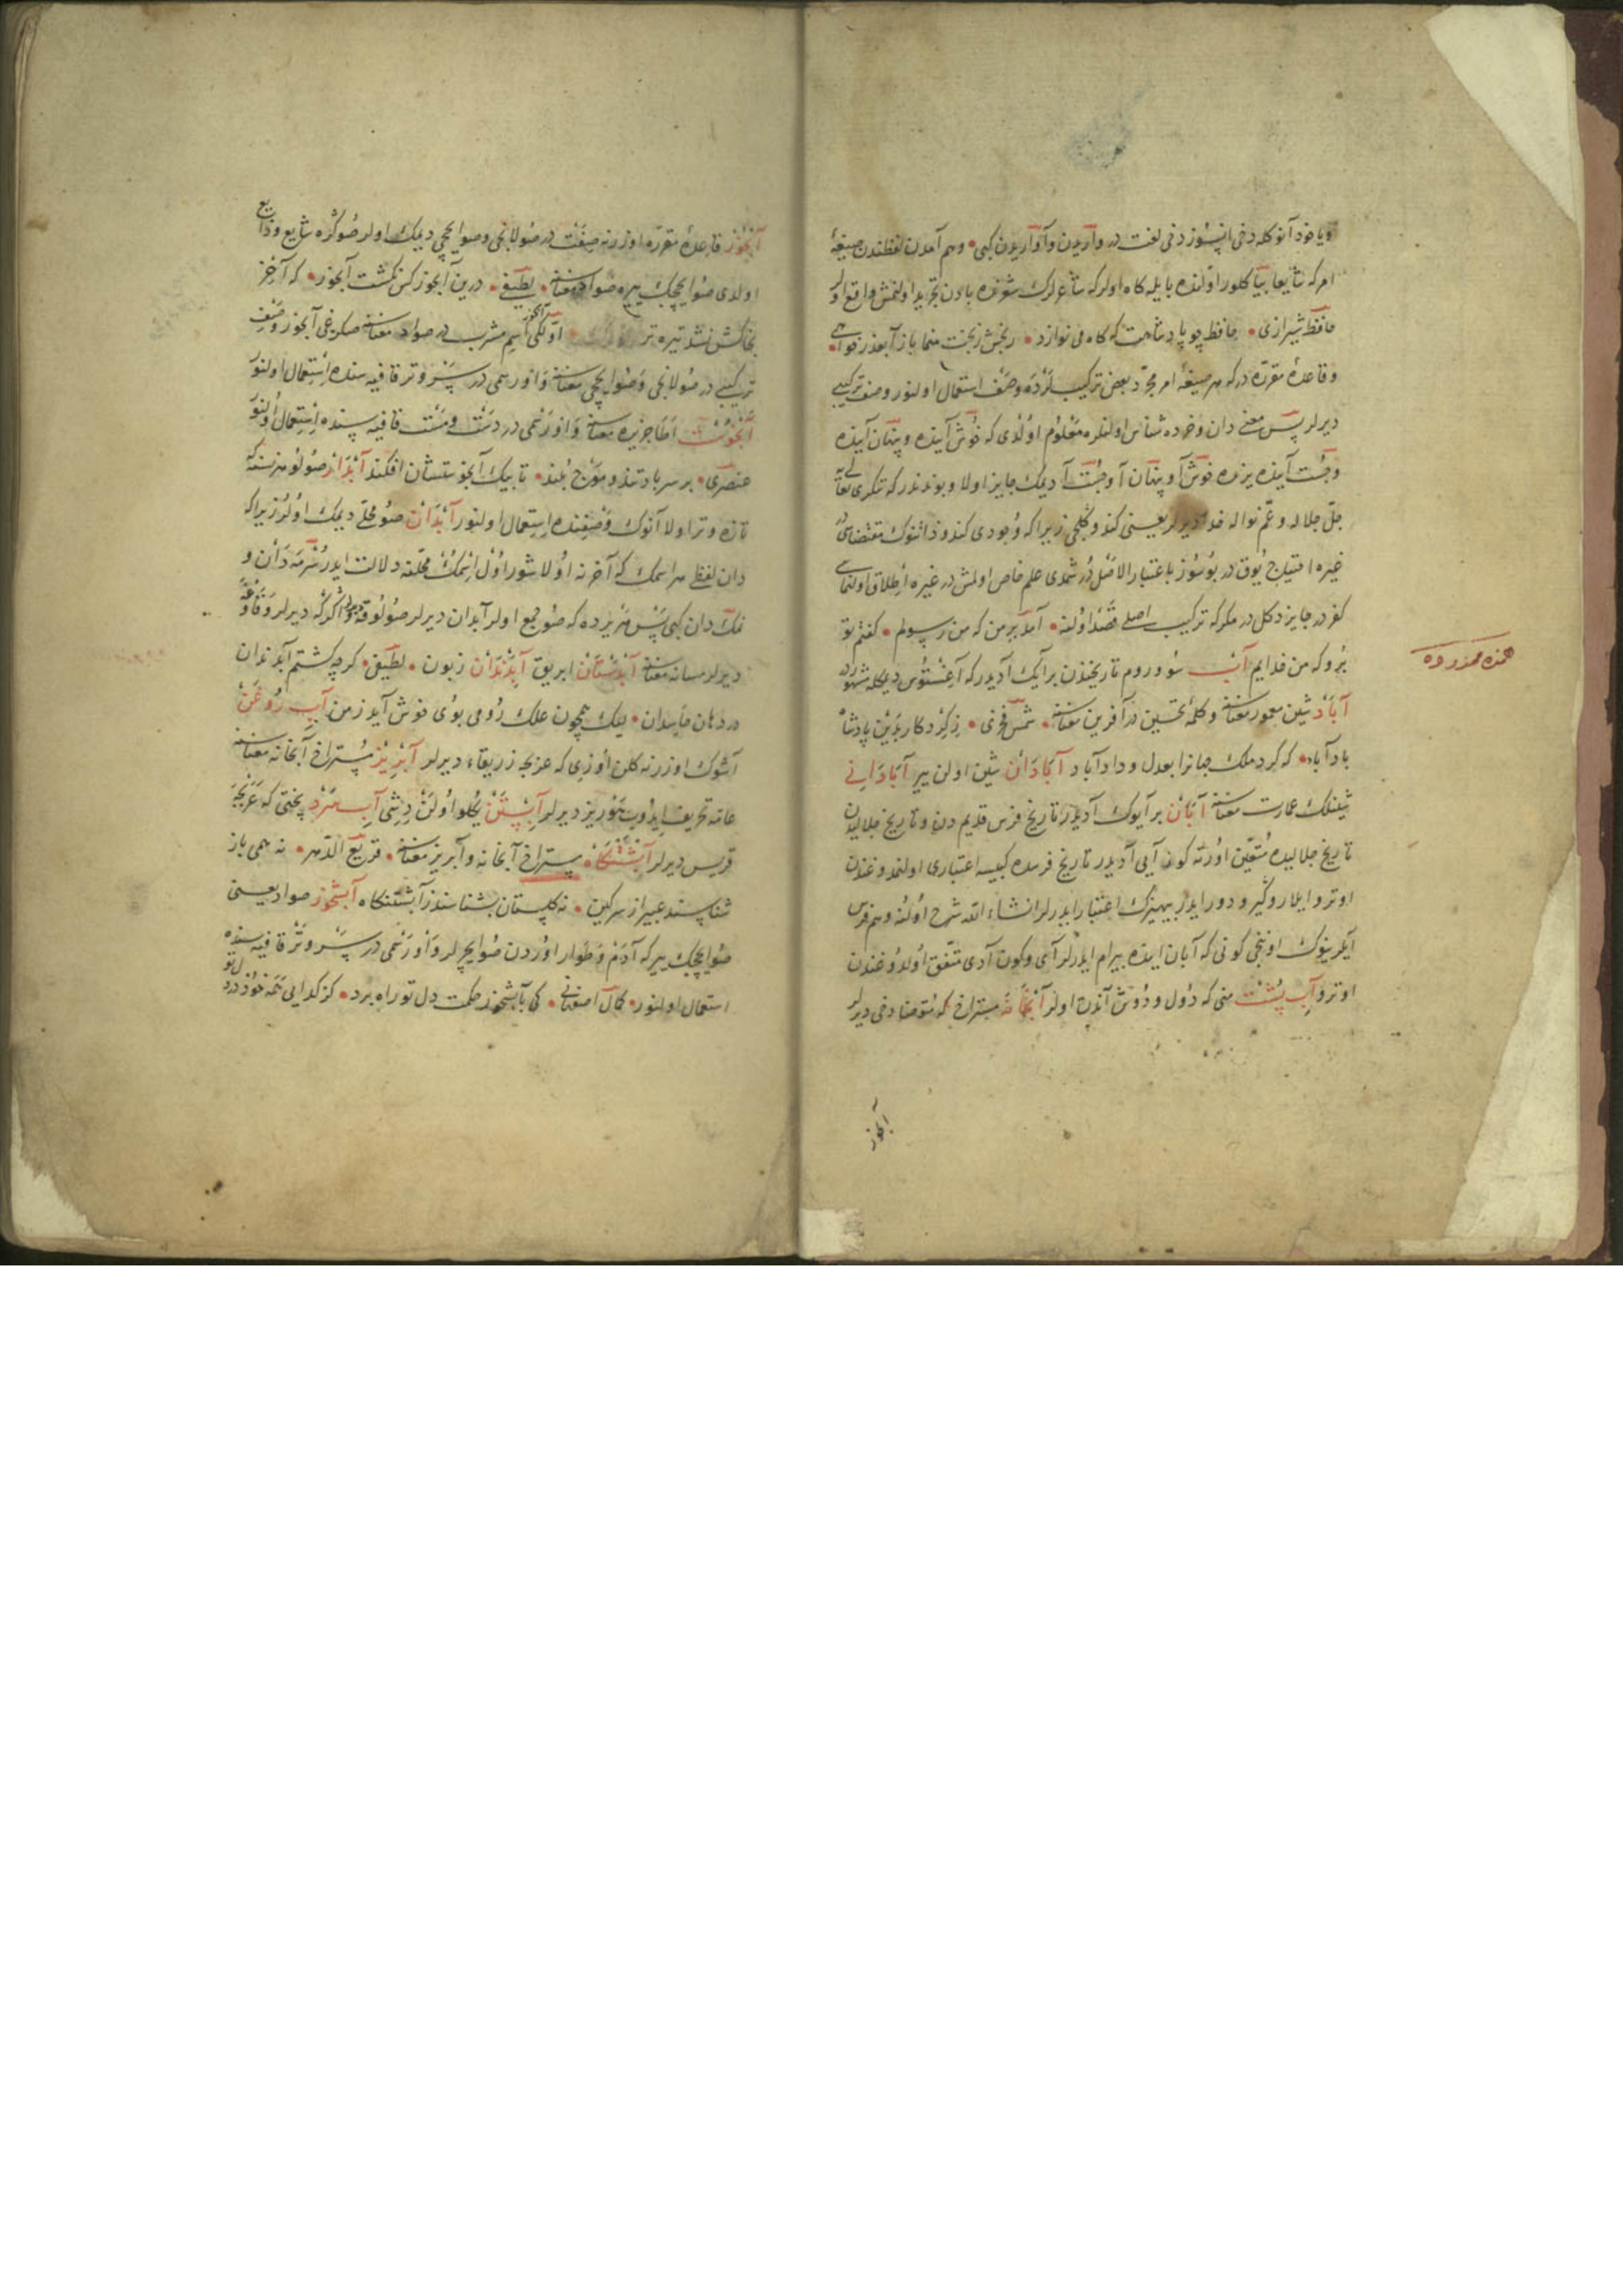 ویا خود آنو کله دخی اپسوز دخی لغت در وآریدن وآوآریدن کبی وهم آمدن لفظندن صیغهٔ
امر که شایعا بیا کلور اوّلنده با یله کاه اولر که شاعرلرک شعرنده بادن تجرید اولنمش واقع اولر
حافظ شیرازی حافظ چو پادشاهت که کاه می نوازد رنجش ز بخت منما باز آ بعذر خواهی
وقاعدهٔ مقرّه در که هر صیغهٔ امر مجرّد بعض ترکیبلرده وصف استعمال اولنور وصف ترکیبی
دیرلر پس معنی دان وخرده شناس اولنلره معلوم اولدی که خوش آینده وپنهان آینده
وجست آینده یرنده خوش آ وپنهان آ وجست آ دیمک جایز اولا وبوندندر که تکری تعالی یه
جلّ جلاله وعمّ نواله خدا دیرلر یعنی کندو کلجی زیرا که وجودی کندو ذاتنوک مقتضاسی در
غیره احتیاج یوق در بو سوز باعتبار الاصل در شمدی علم خاص اولمش در غیره اطلاق اولنماسی
کفر در جایز دکل در مکر که ترکیب اصلی قصد اولنه آمد بر من که من رسولم کفتم تو
برو که من خدایم آب سو وروم تاریخندن بر آیک آدیدر که آغستوس دیمکله مشهور در
آباد شین معمور معناسنه وکلمهٔ تحسین در آفرین معناسنه شمس فخری ز کرد کار برین پادشاه
باد آباد که کرد ملک جهانرا بعدل وداد آباد آبادان شین اولن یر آبادانی
شینلک عمارت معناسنه آبان بر آیوک آدیدر تاریخ فرس قدیم دن وتاریخ جلالیدن
تاریخ جلالیده متعین اورته کون آیی آدیدر تاریخ فرسده کبیسه اعتباری اولنمدوغندن
اوترو ایلارو کیرو دور ایدر بیهیزک اعتبار ایدرلر انشاء الله شرح اولنه وهم فرس
آیلرینوک اوننجی کونی که آبان ایدنده بیرام ایدرلر آی وکون آدی متّفق اولدوغندن
اوترو آب پشت منی که دول ودوش آندن اولر آبخانه مستراح که متوضا دخی دیرلر
آبخور
همزه ممدوده
آبخور قاعدهٔ مقرّره اوزرنه صفت در صولانجی وصو ایچجی دیمک اولر صوکره شایع وذایع
اولدی صو ایچجک یره صواد معناسنه لطیفی درین آبخور کس نکشت آبخور که آخر
بخاکش نشد تیره تر اوّلکی آبخور اسم مشرب در صواد معناسنه صکرغی آبخور وصف
ترکیبی در صولانجی وصو ایچجی معناسنه واوی رسمی در پسر وتر قافیه سنده استعمال اولنور
آبخوست اطا جزیره معناسنه واوی رسمی در دست ومست قافیه سنده استعمال اولنور
عنصری بر سر باد تند وموج بلند تا بیک آبخوستشان افکند آبدار صولو هر نسنه که
تازه وتر اولا آنوک وصفنده استعمال اولنور آبدان صو محلّی دیمک اولر زیرا که
دان لفظی هر اسمک که آخرنه اولاشور اول اسمک محلّنه دلالت ایدر سرمه دان و
نمک دان کبی پس هر یرده که صو جمع اولر آبدان دیرلر صولوقه
دیرلر مسانه معناسنه آبدستان ابریق آبدندان زبون لطیفی کرچه کشتم آبدندان
در دهان حاسدان لیک همچون علک رومی بوی خوش آید ز من آب روغن
آشوک اوزرنه کلن اوزی که عربجه زریقاء دیرلر آبریز مستراح آبخانه معناسنه
عامه تحریف ایدوب دیرلر آبستن یکلو اولن دیشی آب سرد پختی که عربجه
قریس دیرلر آبشتنگاه مستراح آبخانه وآبریز معناسنه قریع الدّهر نه همی باز
شناسند عبیر از سرکین نه کلستان بشناسند ز آبشتنکاه آبشخور صواد یعنی
صو ایچجک یر که آدم وطوار اوردن صو ایچرلر واوی رسمی در پسر وتر قافیه سنده
استعمال اولنور کمال اصفهانی کی بآبشخور حکمت دل تو راه برد